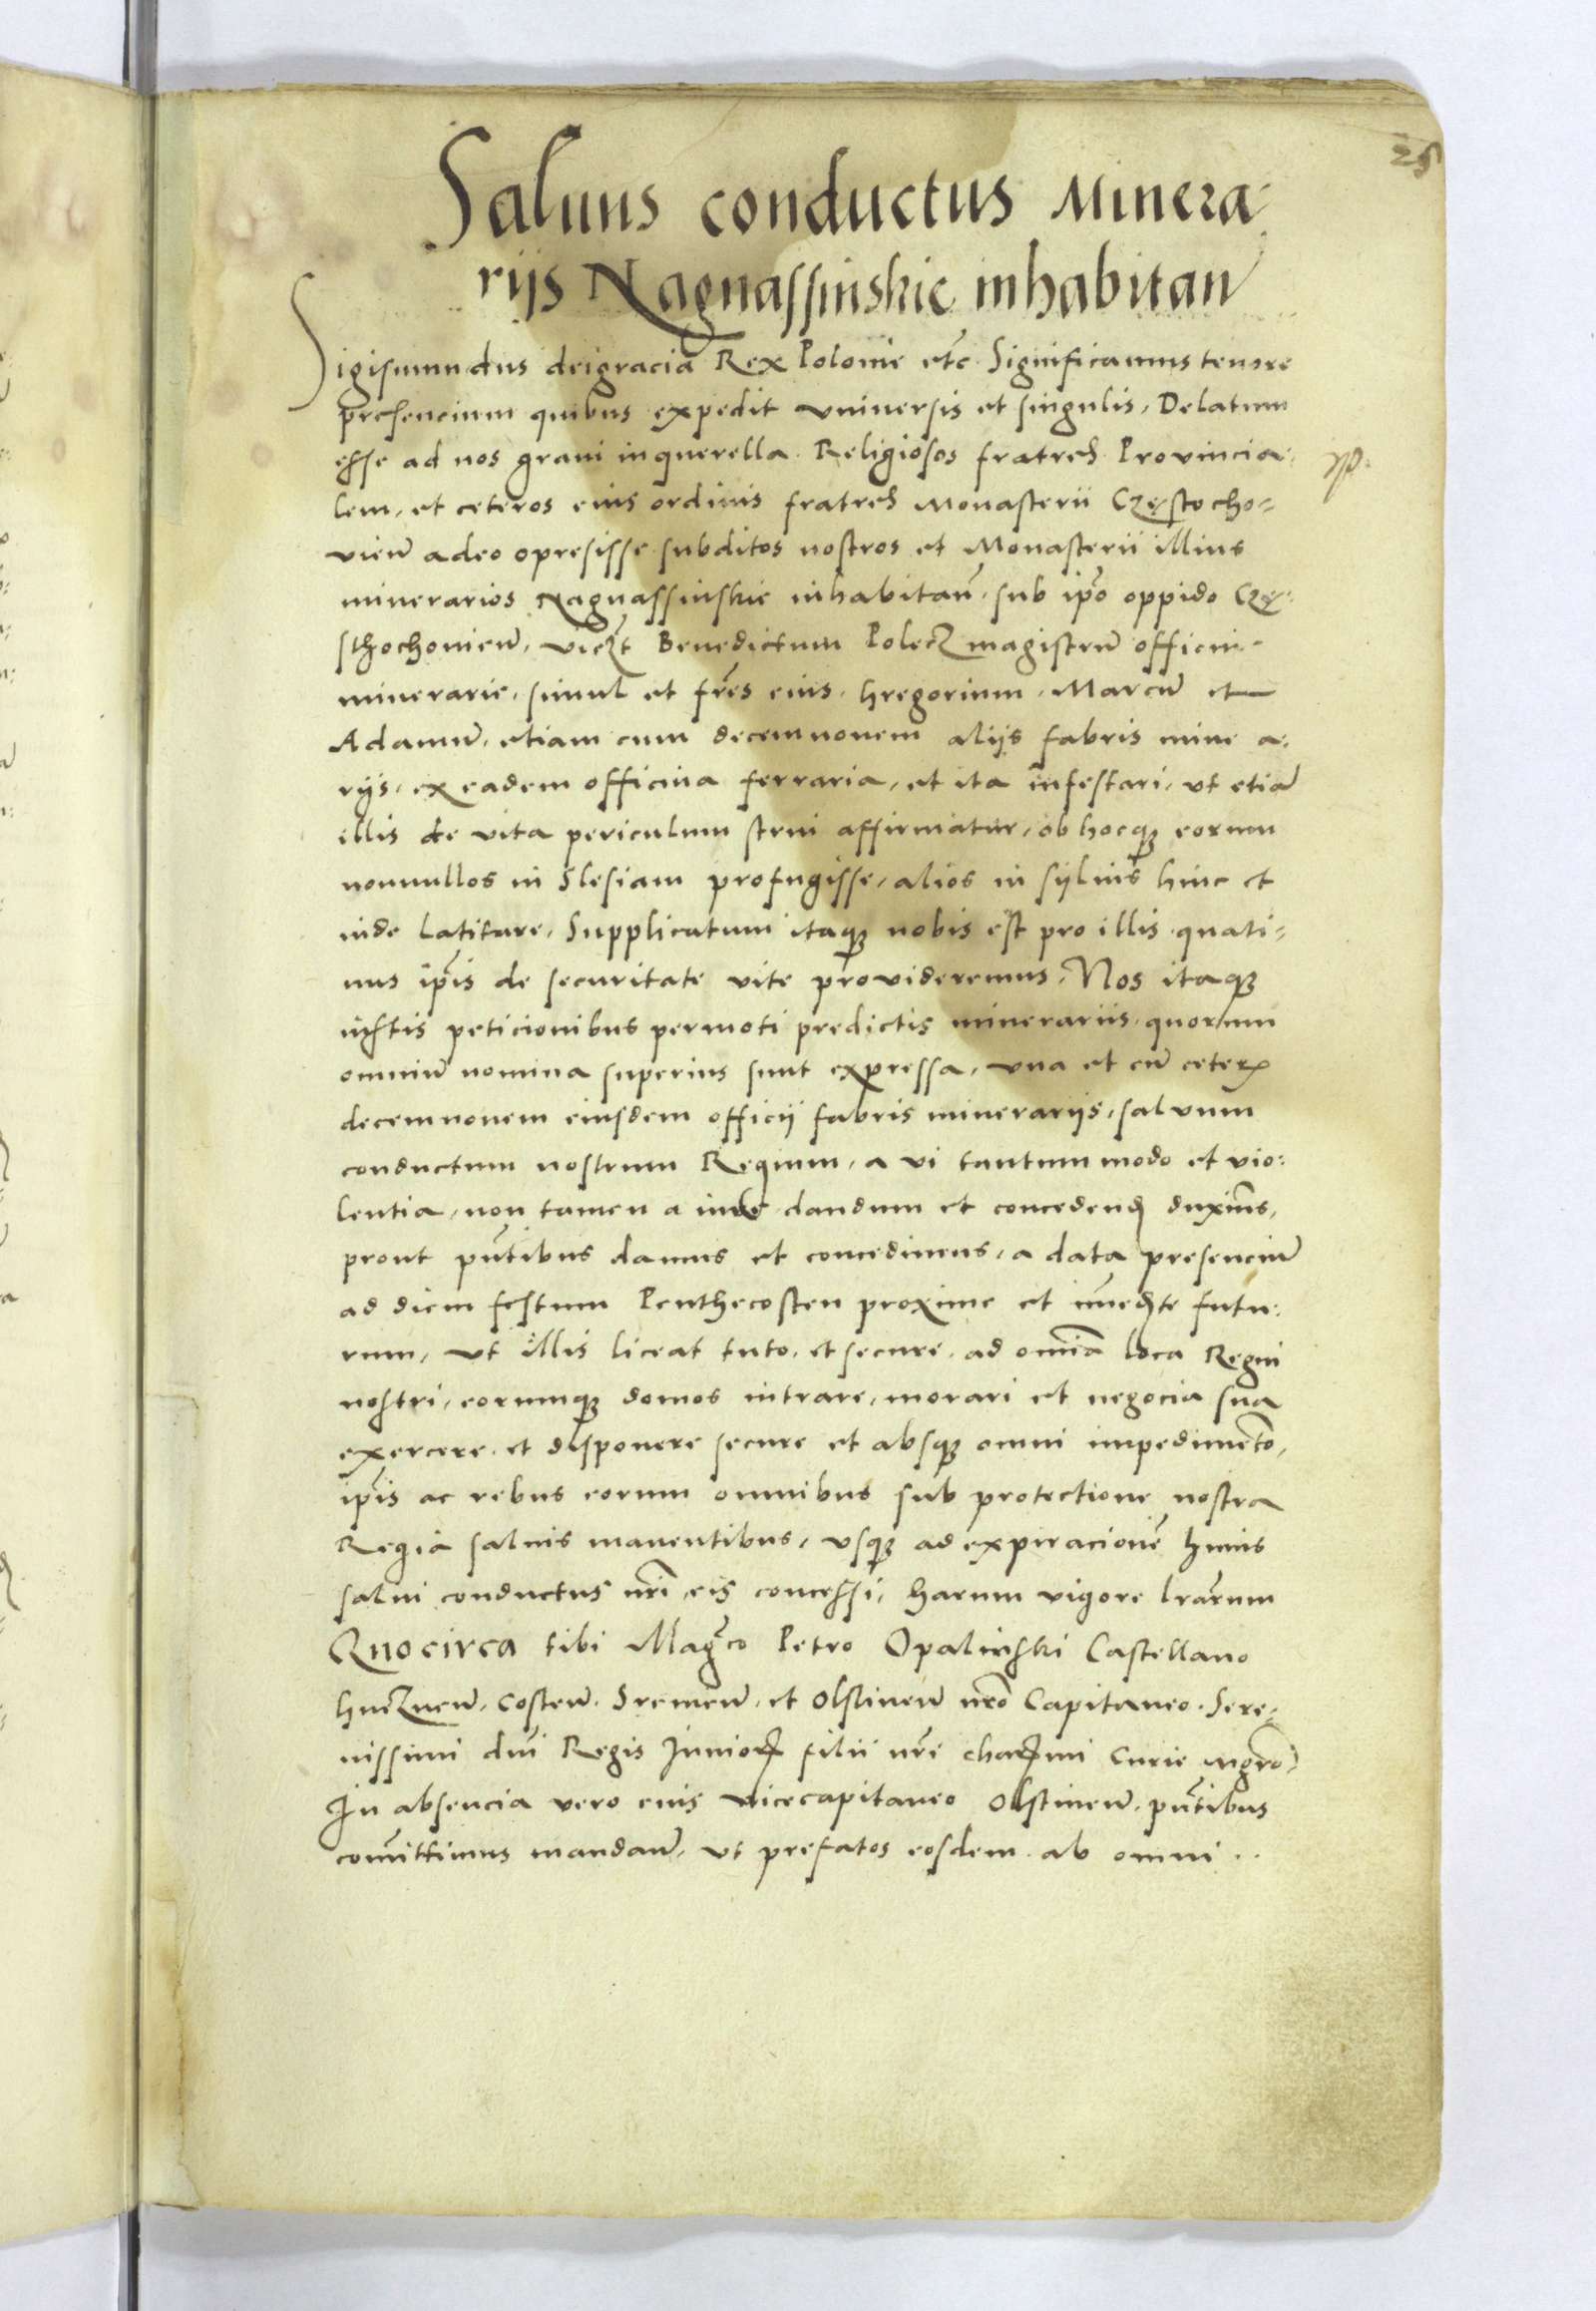 25
Saluus conductus Minera
rijs Nagnassinskie inhabitan
Sigismundus deigracia Rex Polonie etc Significamus tenore
presencium quibus expedit vniuersis et singulis, Delatum
esse ad nos graui in querella. Religiosos fratres Provincia
lem, et ceteros eius ordinis fratres Monasterii Częstocho-
vien̄ adeo opresisse subditos nostros et Monasterii illius
minerarios Nagnassinskie inhabitan̄. sub ip̄o oppido Czę-
sthochouien̄, viczt Benedictum Polecz magistru̅ officine
minerarie, simul et fr̄es eius. hregorium. Marcu̅ et
Adamu̅, etiam cum decemnouem alijs fabris mine a-
rijs, ex eadem officina ferraria, et ita infestari, ut etia̅
illis de vita periculum strui affirmatur, ob hocq̨ eorum
nonnullos in Slesiam profugisse, alios in syluis hinc et
inde latitare, Supplicatum itaq̨ nobis est pro illis quati-
nus ip̄is de securitate vite provideremus, Nos itaq̨
iustis peticionibus permoti predictis minerariis. quorum
omniu̅ nomina superius sunt expressa, vna et cu̅ ceteꝝ
decemnouem eiusdem officij fabris minerarijs, salvum
conductum nostrum Regium, a vi tantum modo et vio-
lentia, non tamen a iure dandum et concedend̨ duxim̄s,
prout pn̄tibus damus et concedimus, a data presenciu̅
ad diem festum Penthecosten proxime et im̄ed̨te futu-
rum, ut illis liceat tuto, et secure, ad omnia loca Regni
nostri, eorumq̨ domos intrare, morari et negocia sua
exercere et disponere secure et absq̨ omni impedime̅to,
ip̄is ac rebus eorum omnibus sub protectione nostra
Regia saluis manentibus, vsq̨ ad expiracione̅ huius
salui conductus nr̄i eis concessi, harum vigore lr̄arum
Quocirca tibi Mag̅co Petro Opalinski Castellano
hneznen̄, Costen̄. Sremen̄, et Olstinen̄ nr̄o Capitaneo. Sere-
nissimi dn̄i Regis Junioꝝ filii nr̄i chaꝝmi Curie mgr̄o,
In absencia vero eius vicecapitaneo Olstinen̄. pn̄tibus
com̄ittimus mandan̄, ut prefatos eosdem ab omni ..